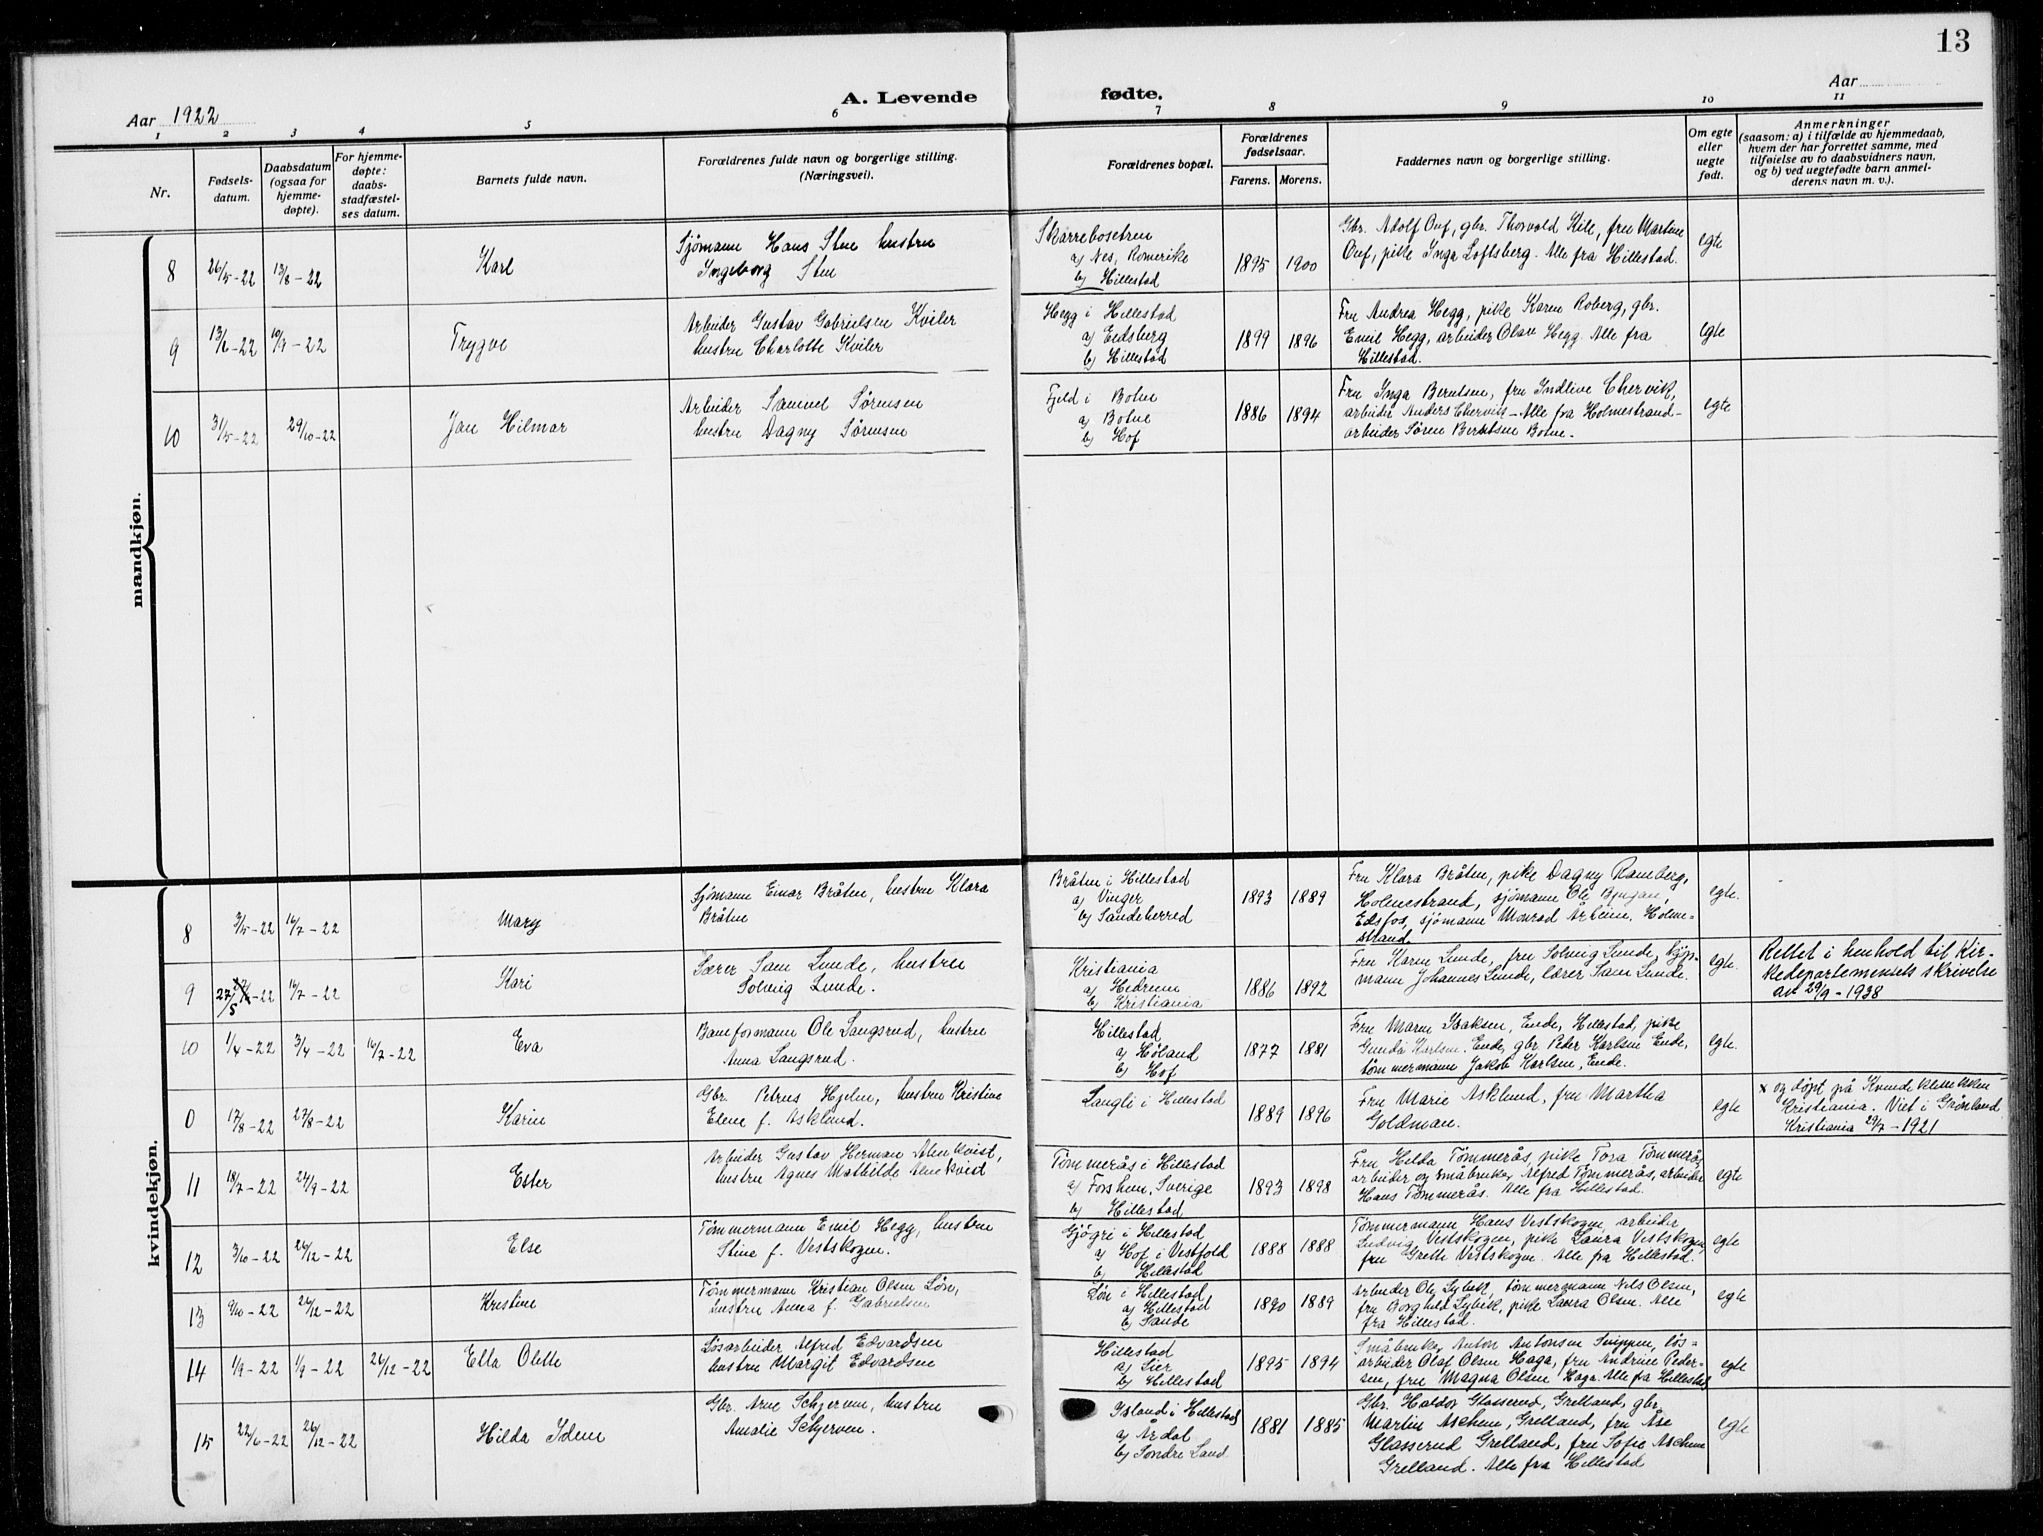 13
Aar 1922
A. Levende fødte.
Aar
1 2 3 4 5 6 7 8 9 10 11
Nr.
Fødsels-
datum.
Daabsdatum
(ogsaa for
hjemme-
døpte).
For hjemme-
døpte:
daabs-
stadfæstel-
ses datum.
Barnets fulde navn.
Forældrenes fulde navn og borgerlige stilling.
(Næringsvei).
Forældrenes bopæl.
Forældrenes
fødselsaar.
Farens. Morens.
Faddernes navn og borgerlige stilling.
Om egte
eller
uegte
født.
Anmerkninger
(saasom: a) i tilfælde av hjemmedaab,
hvem der har forrettet samme, med
tilføielse av to daabsvidners navn,
og b) ved uegtefødte barn anmel-
derens navn m. v.).
mandkjøn.
8 26/5-22 13/8-22 Karl
Sjømann Hans Sten hustru
Ingeborg Sten
Skarrebosetren
a) Nes, Romerike
b) Hillestad
1895 1900
Gbr. Adolf Ouf, gbr. Thorvald Kile, fru Martine
Ouf, pike Inga Loftsberg. Alle fra Hillestad.
egte
9 13/6-22 10/9-22 Trygve
Arbeider Gustav Gabrielsen Kviler
hustru Charlotte Kviler
Hegg i Hillestad
a) Eidsberg
b) Hillestad
1899 1896
Fru Andrea Hegg, pike Karen Roberg, gbr.
Emil Hegg, arbeider Olav Hegg. Alle fra
Hillestad.
egte
10 31/5-22 29/10-22 Jan Hilmar
Arbeider Samuel Sørensen
hustru Dagny Sørensen
Fjeld i Botne
a) Botne
b) Hof
1886 1894
Fru Inga Berntsen, fru Indlive Chervik,
arbeider Anders Chervik - Alle fra Holmestrand -
arbeider Søren Berntsen Botne.
egte
kvindekjøn.
8 3/5-22 16/7-22 Mary
Sjømann Einar Bråten, hustru Klara
Bråten
Bråten i Hillestad
a) Vinger
b) Sandeherred
1893 1889
Fru Klara Bråten, pike Dagny Ramberg,
Holmestrand, sjømann Ole
Eidsfos, sjømann Monrad Holme-
strand.
egte.
9 27/5 -22 16/7-22 Kari
Lærer Sam Lunde, hustru
Solveig Lunde.
Kristiania
a) Hedrum
b) Kristiania
1886 1892
Fru Karen Lunde, fru Solveig Lunde,
mann Johannes Lunde, lærer Sam Lunde.
egte.
Rettet i henhold til Kir-
kedepartementets skrivelse
av 29/9-1938
10 1/4-22 3/4-22 16/7-22 Eva
Baneformann Ole Langsrud, hustru
Anna Langsrud.
Hillestad
a) Høland
b) Hof
1877 1881
Fru Marie Isaksen, Ende, Hillestad, pike
Gunda Karlsen. Ende, gbr Peder Karlsen Ende,
tømmermann Jakob Karlsen, Ende.
egte.
0 17/8-22 27/8-22 Karin
Gbr. Petrus Hjelm, hustru Kristine
Elene f. Asklund.
Langli i Hillestad
1889 1896
Fru Marie Asklund, fru Martha
Goldman.
egte
x og døpt på Kvindeklinikken
Kristiania. Viet i Grønland
Kristiania 29/7-1921
11 18/7-22 24/9-22 Ester
Arbeider Gustav Herman Almkvist,
hustru Agnes Mathilde Almkvist
Tømmerås i Hillestad
a) Forshem, Sverige
b) Hillestad
1893 1898
Fru Hilda Tømmerås, pike Tora Tømmerås,
arbeider og småbruker Alfred Tømmerås, arbeider
Hans Tømmerås. Alle fra Hillestad.
egte
12 3/10-22 26/12-22 Else
Tømmermann Emil Hegg, hustru
Stine f. Vestskogen.
Gjøgri i Hillestad
a) Hof i Vestfold
b) Hillestad
1888 1888
Tømmermann Hans Vestskogen, arbeider
Ludvig Vestskogen, pike Laura Vestskogen,
fru Grethe Vestskogen. Alle fra Hillestad.
egte
13 9/10-22 26/12-22 Kristine
Tømmermann Kristian Olsen Løn,
hustru Anna f. Gabrielsen
Løn i Hillestad
a) Hillestad
b) Sande
1890 1889
Arbeider Ole Lybek, tømmermann Nils Olsen,
fru Borghild Lybek, pike Laura Olsen. Alle
fra Hillestad.
egte
14 1/9-22 1/9-22 26/12-22 Ella Olette
Løsarbeider Alfred Edvardsen
hustru Margit Edvardsen
Hillestad
a) Lier
b) Hillestad
1895 1894
Småbruker Anton Antonsen Snippen, løs-
arbeider Olaf Olsen Haga, fru Andrine Peder-
sen, fru Magna Olsen Haga. Alle fra Hillestad
egte
15 22/6-22 26/12-22 Hilda Idem
Gbr. Arne Schjerven, hustru
Amalie Schjerven.
Island i Hillestad
a) Årdal
b) Søndre Land
1881 1885
Gbr. Haldor Glasserud, Grelland, gbr.
Martin Aschem, Grelland, fru Åse
Glasserud Grelland, fru Sofie Aschem
Grelland. Alle fra Hillestad
egte